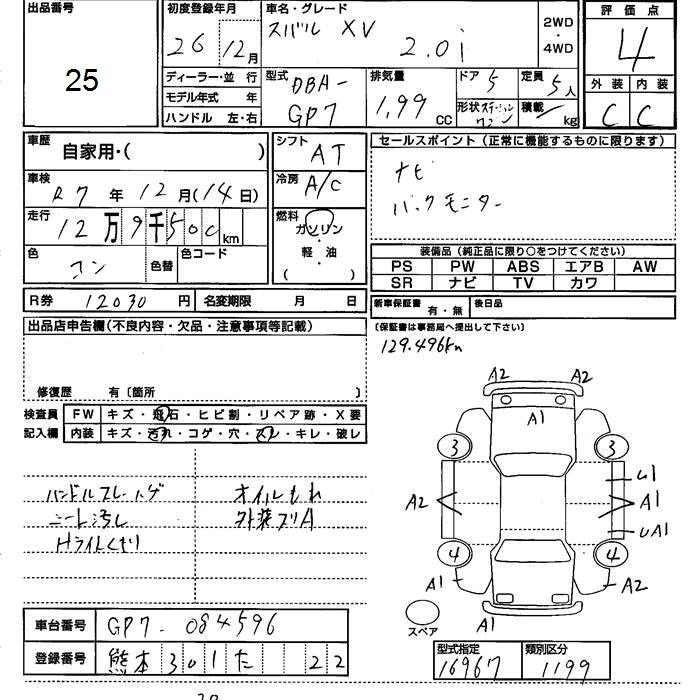 出品番号
25
初度登録年月
26年12月
車名・グレード
スバル XV
2.0i
2WD
・
4WD
評価点
4
外装 内装
C C
ディーラー・並 行
モデル年式 年
ハンドル 左・右
型式
DBA-
GP7
排気量
1,99
CC
ドア 5
形状 ステーションワゴン
定員
5人
積載
kg
車歴
自家用・( )
車検
R7年12月(14日)
走行
12万9千500km
色
コン
色替
色コード
シフト
AT
冷房
A/C
燃料
ガソリン
・
軽・油
( )
セールスポイント(正常に機能するものに限ります)
ナビ
バックモニター
装備品(純正品に限り○をつけてください)
PS PW ABS エアB AW
SR ナビ TV カワ
R券 12030 円
名変期限 月 日
新車保証書
有・無
後日品
(保証書は事務局へ提出して下さい)
129.496km
出品店申告欄(不良内容・欠品・注意事項等記載)
修復歴 有〔箇所 〕
検査員 FW キズ・飛石・ヒビ割・リペア跡・X要
記入欄 内装 キズ・汚れ・コゲ・穴・スレ・キレ・破レ
オイルもれ
シート汚レ 外装コスリA
Hライトくもり
A2 A2
A1
3 3
U1
A2 A1
UA1
4 4
A1 A2
スペア
A1
車台番号 GP7-084596
登録番号 熊本301た 22
型式指定
16967
類別区分
1199